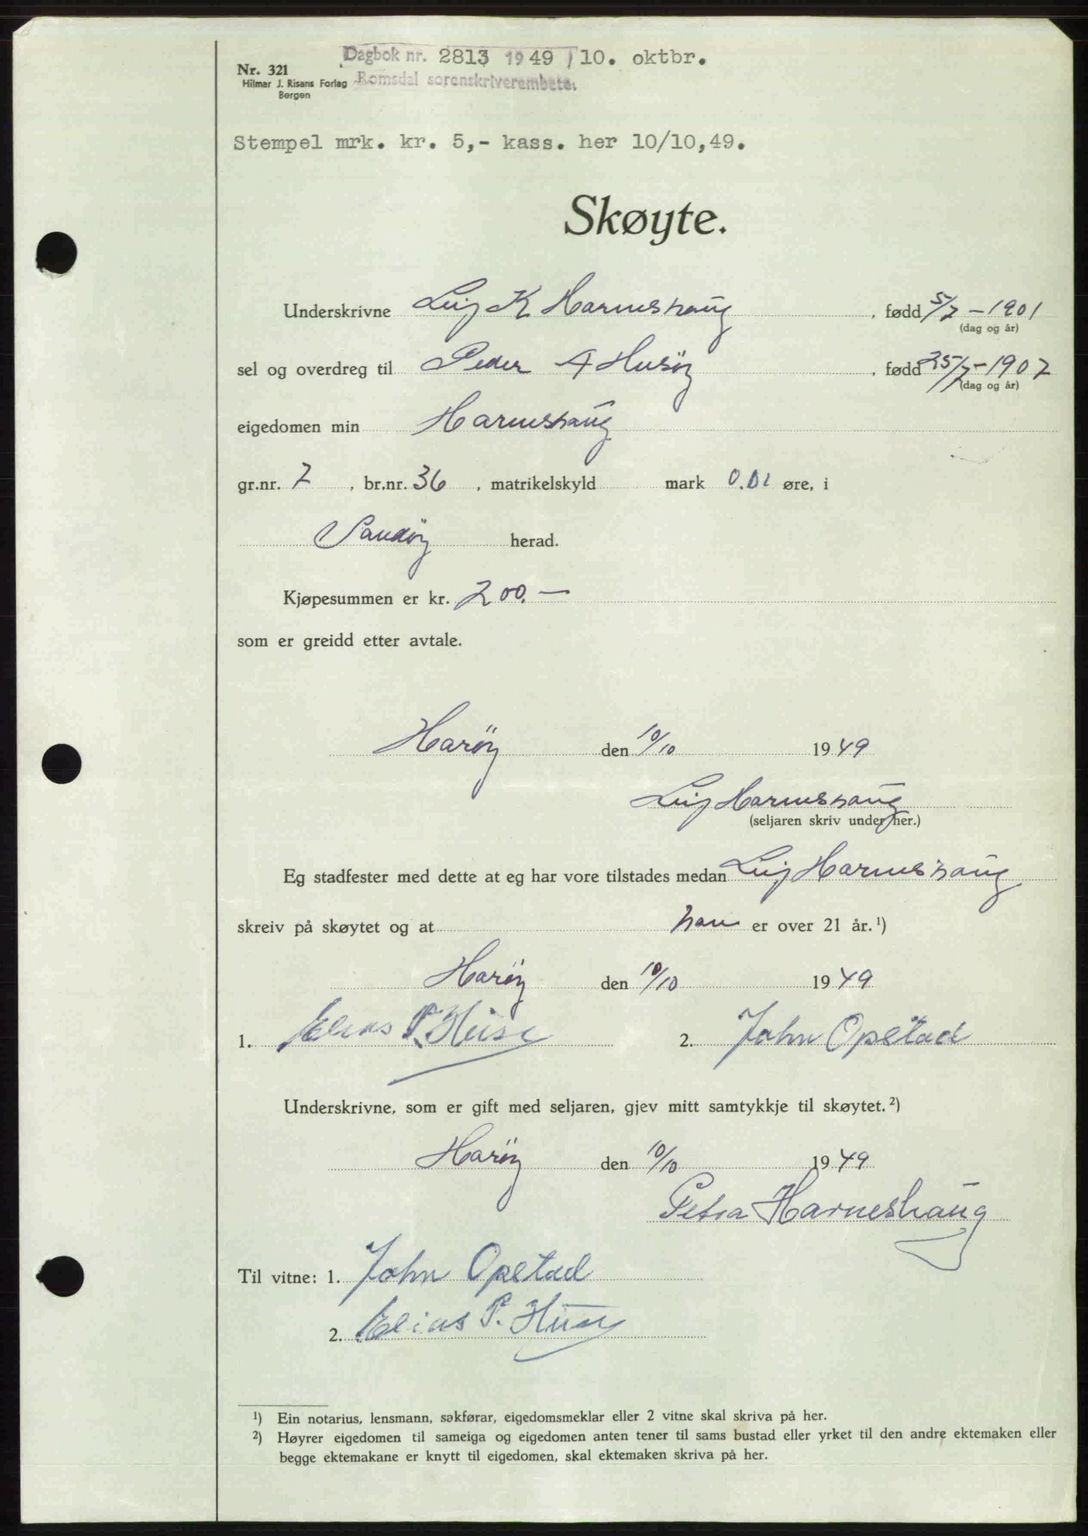 Dagbok nr. 2813 1949 / 10. oktbr.
Nr. 321
Hilmar J. Risans Forlag
Bergen
Romsdal sorenskriverembete.
Stempel mrk. kr. 5,- kass. her 10/10,49.
Skøyte.
Underskrivne Leif K Harneshaug, fødd 5/7-1901
(dag og år)
sel og overdreg til Peder A Husøy, fødd 25/7-1907
(dag og år)
eigedomen min Harneshaug
gr.nr. 7, br.nr. 36, matrikelskyld mark 0.01 øre, i
Sandøy herad.
Kjøpesummen er kr. 200.—
som er greidd etter avtale.
Harøy den 10/10 1949
Leif Harneshaug
(seljaren skriv under her.)
Eg stadfester med dette at eg har vore tilstades medan Leif Harneshaug
skreiv på skøytet og at han er over 21 år.¹)
Harøy den 10/10 1949
1. Elias P. Huse 2. John Opstad
Underskrivne, som er gift med seljaren, gjev mitt samtykkje til skøytet.²)
Harøy den 10/10 1949
Petra Harneshaug
Til vitne: 1. John Opstad
2. Elias P. Huse
¹) Ein notarius, lensmann, sakførar, eigedomsmeklar eller 2 vitne skal skriva på her.
²) Høyrer eigedomen til sameiga og eigedomen anten tener til sams bustad eller yrket til den andre ektemaken eller
begge ektemakane er knytt til eigedomen, skal ektemaken skriva på her.